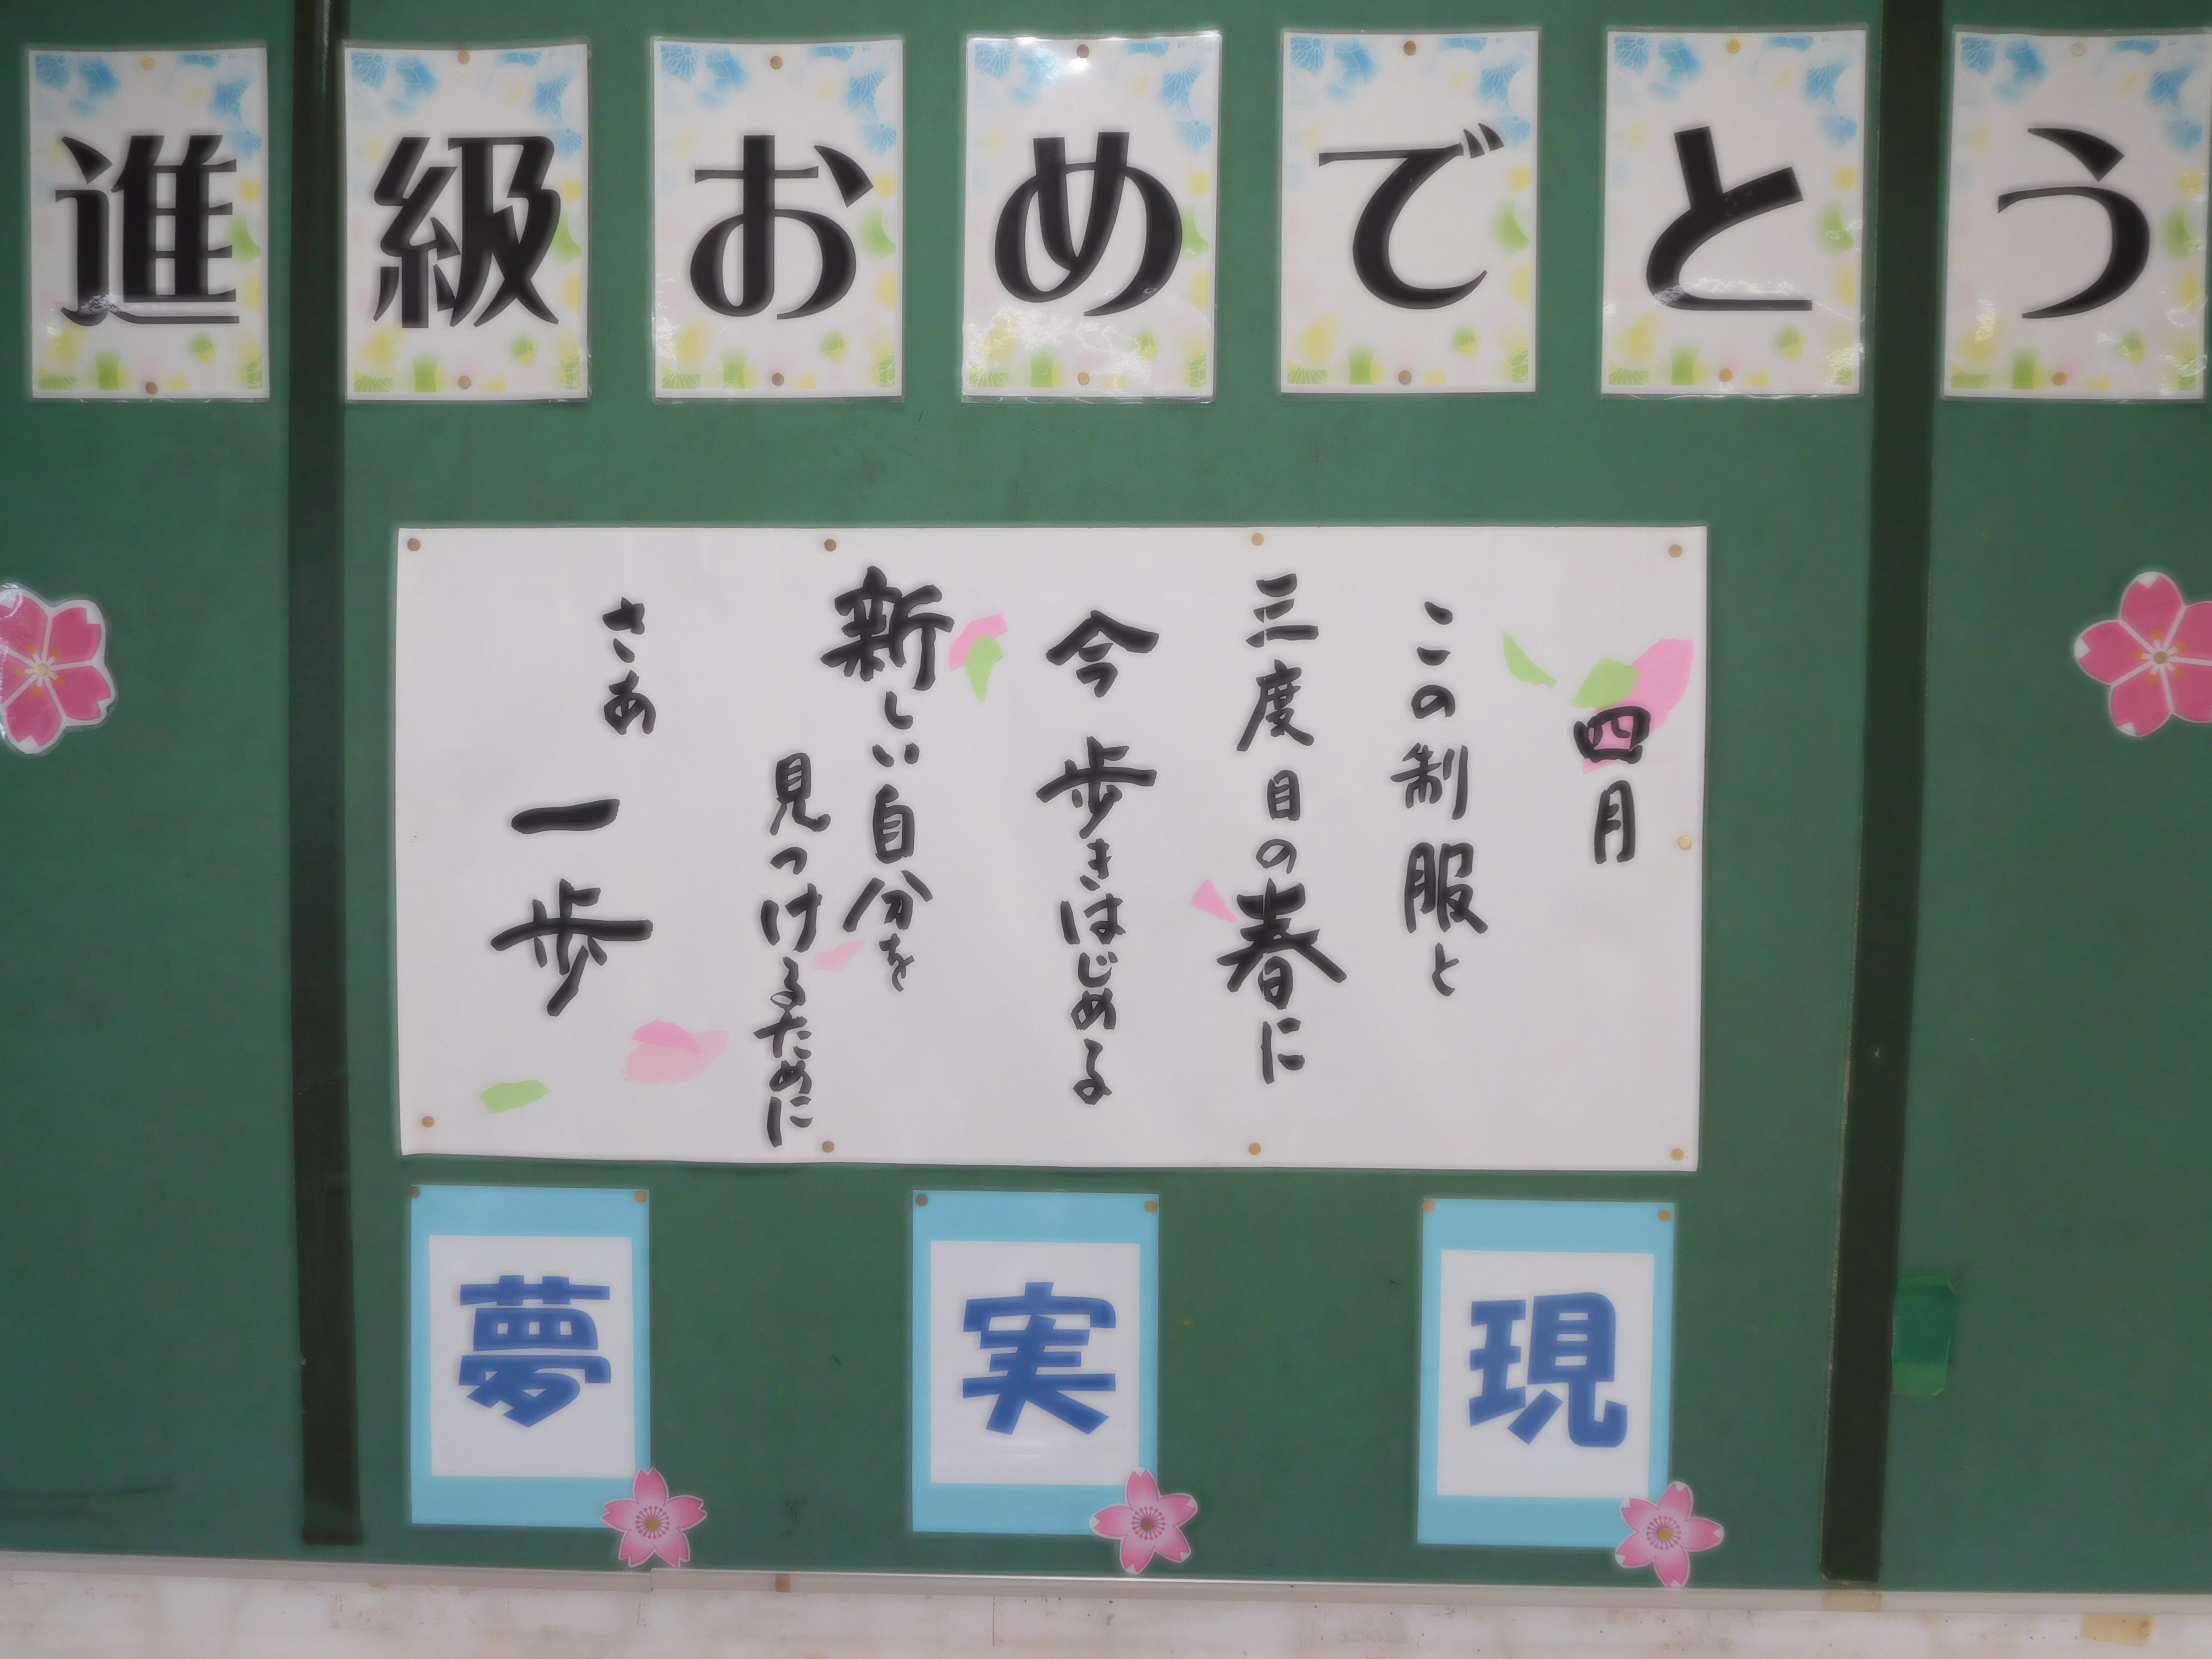 進級おめでとう
四月
この制服と
三度目の春に
今歩きはじめる
新しい自分を
見つけるために
さあ一歩
夢実現